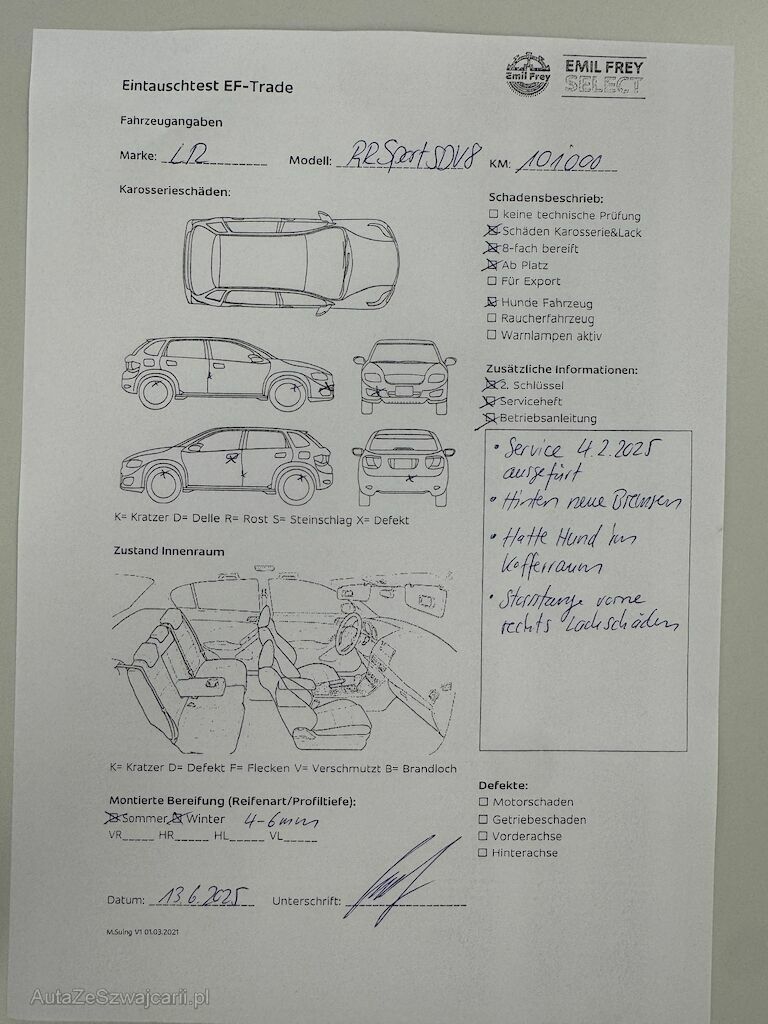 Emil Frey
EMIL FREY
SELECT
Eintauschtest EF-Trade
Fahrzeugangaben
Marke: LR Modell: RR Sport SDV8 KM: 101'000
Karosserieschäden:
Schadensbeschrieb:
keine technische Prüfung
Schäden Karosserie&Lack
8-fach bereift
Ab Platz
Für Export
Hunde Fahrzeug
Raucherfahrzeug
Warnlampen aktiv
Zusätzliche Informationen:
2. Schlüssel
Serviceheft
Betriebsanleitung
• Service 4.2.2025
ausgefürt
• Hinten neue Bremsen
• Hatte Hund im
Kofferraum
• Stossstange vorne
rechts Lackschäden
K= Kratzer D= Delle R= Rost S= Steinschlag X= Defekt
Zustand Innenraum
K= Kratzer D= Defekt F= Flecken V= Verschmutzt B= Brandloch
Montierte Bereifung (Reifenart/Profiltiefe):
Sommer Winter 4-6mm
VR_____ HR_____ HL_____ VL_____
Defekte:
Motorschaden
Getriebeschaden
Vorderachse
Hinterachse
Datum: 13.6.2025 Unterschrift:
M.Suing V1 01.03.2021
AutaZeSzwajcarii.pl